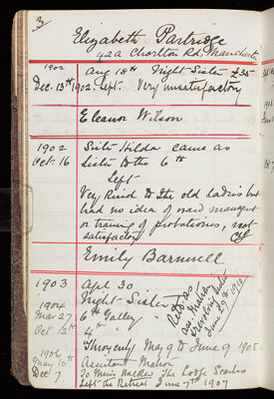 3
Elizabeth Partridge
42a Chorlton Rd, Manchester.
1902 Aug 18th Night Sister £35
Dec. 13th 1902. Left. Very unsatisfactory
Eleanor Wilson
1902 Sister Hilda came as
Oct. 16 Sister to the 6th
Left
Very Kind to the old ladies but
had no idea of ward managmt
or training of probationers, not
satisfactory
Emily Barnwell
1903 Apl 30
Night Sister
1904
Mar 27 6th Gallery
Oct 12th 4th
Throxenby May 9th to June 9 1905
1906
May 10th Assistant Matron
Dec 7 To Miss Walker The Lodge
Left the Retreat June 7th 1907
Retd as
Ass Matron
June 29th 1910